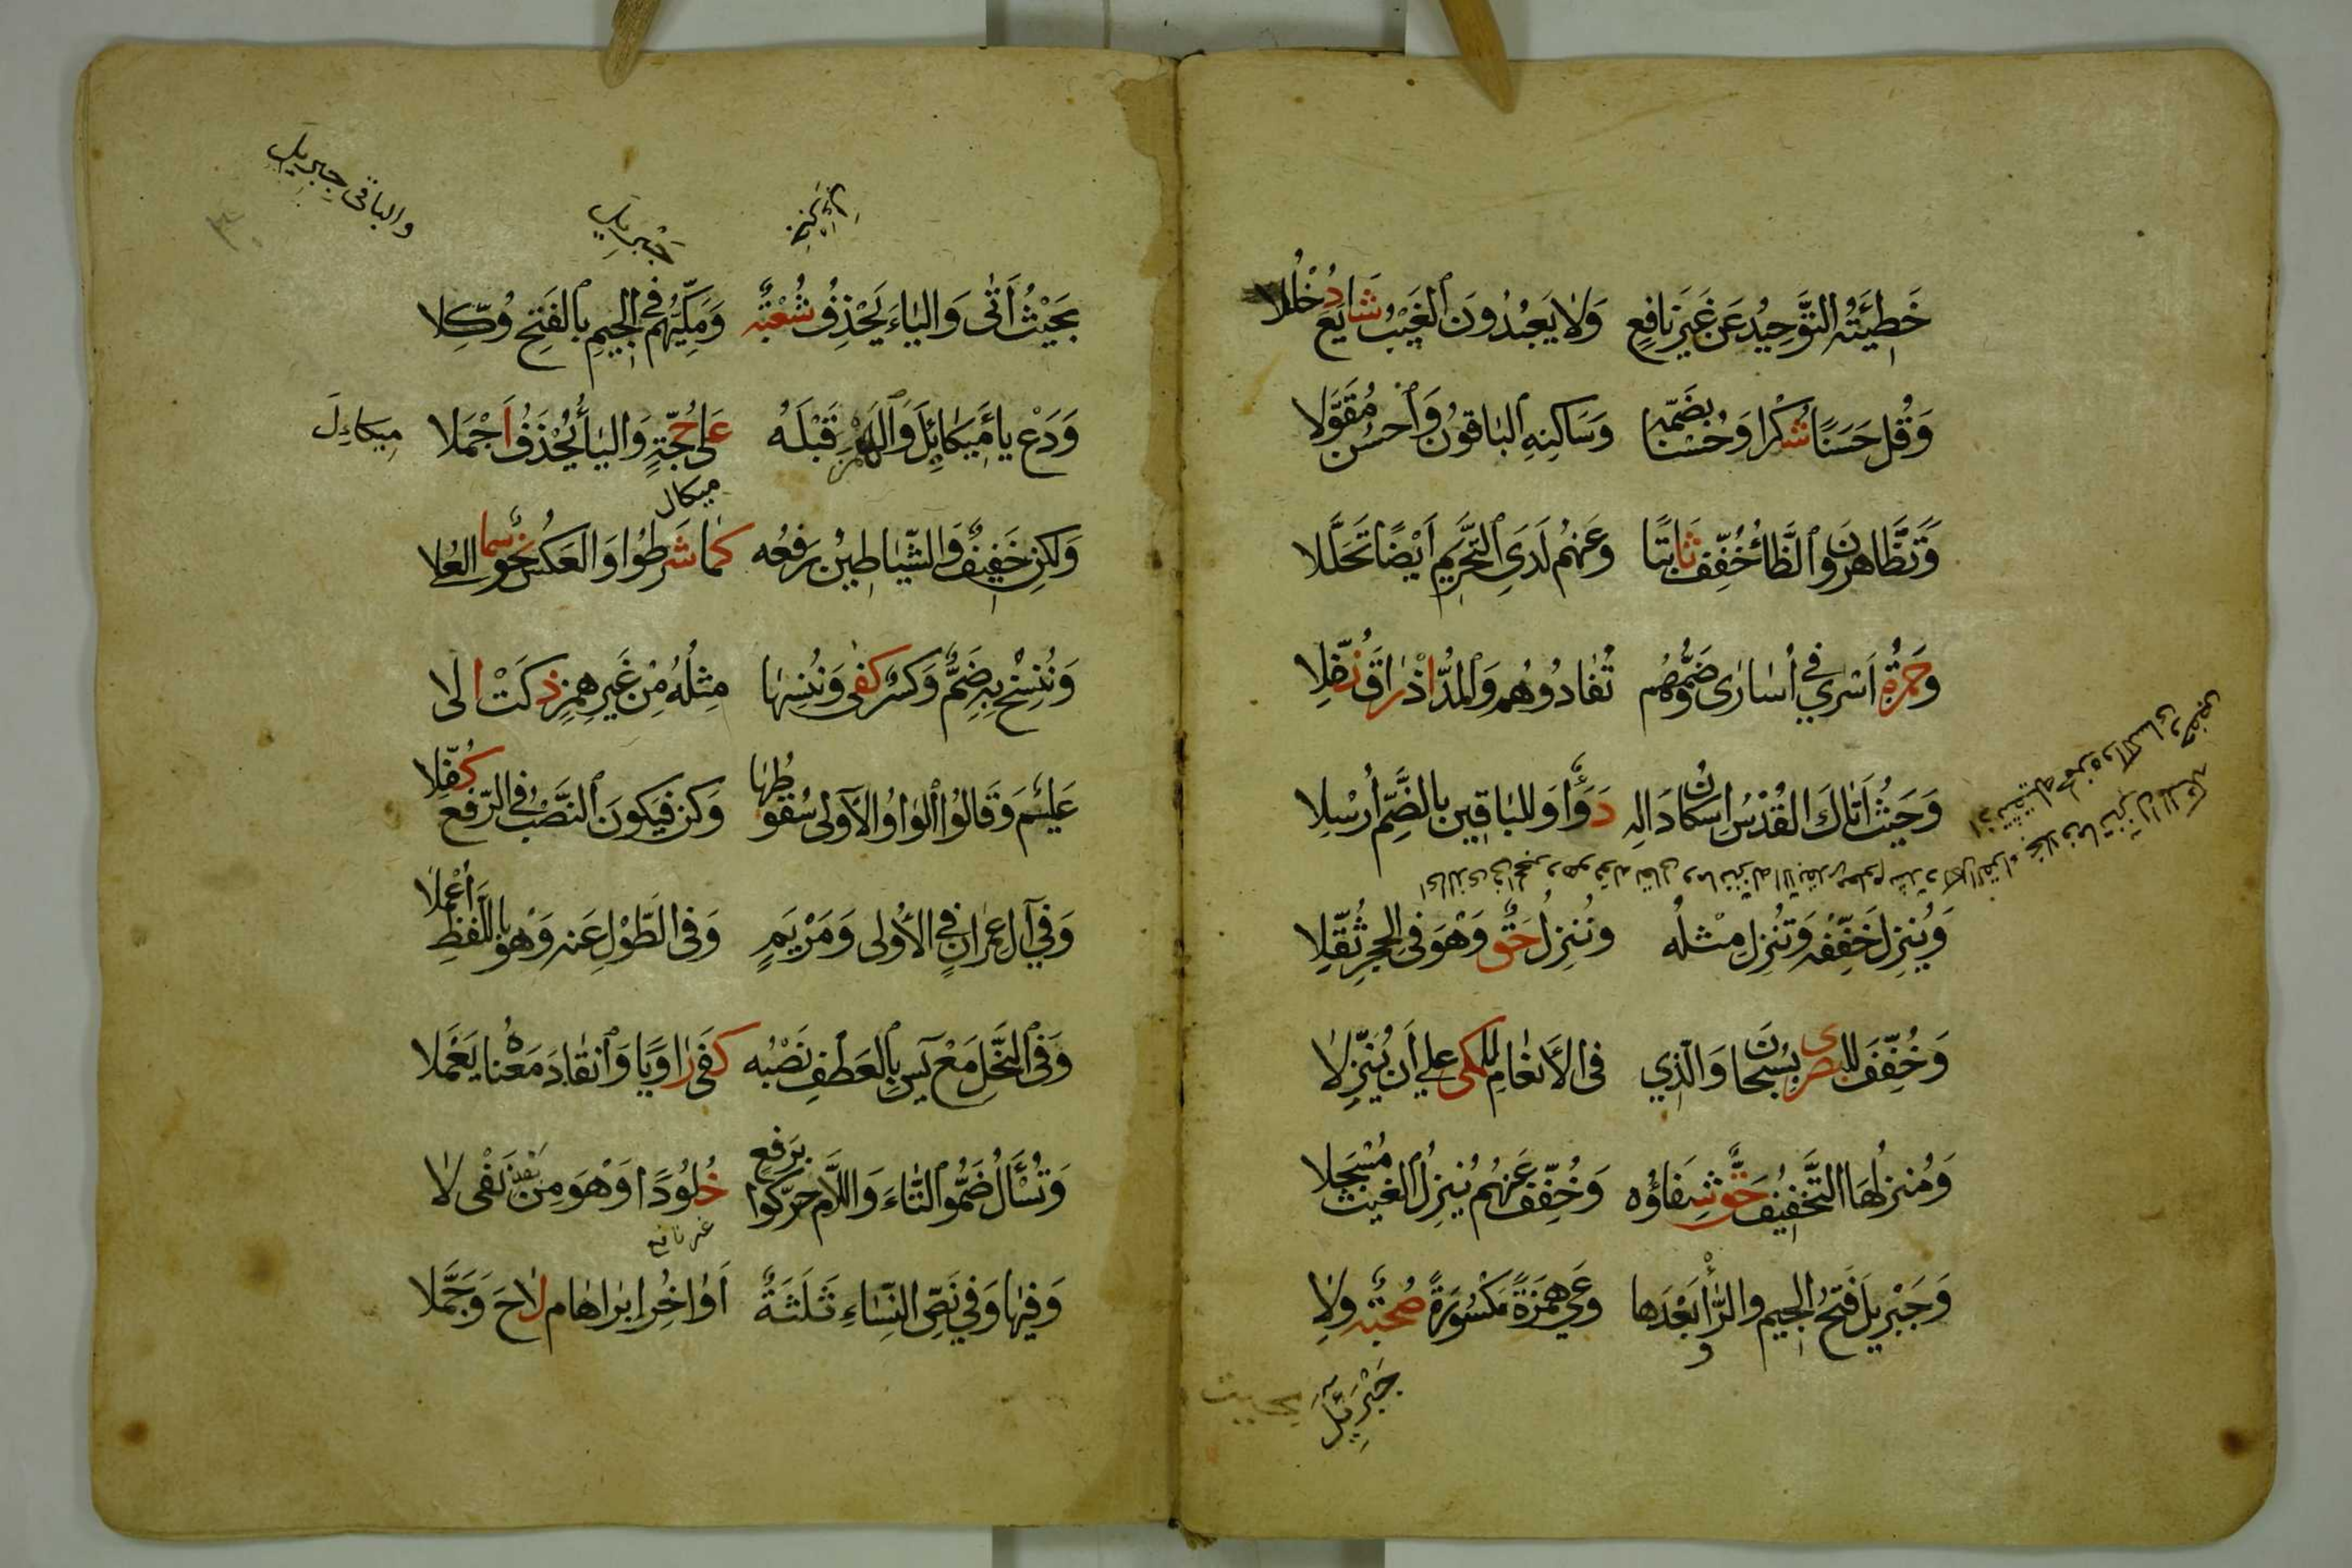 خَطِيئَتُهُ التَّوْحِيدُ عَنْ غَيْرِ نَافِعٍ وَلَا يَعْبُدُونَ الْغَيْبُ شَايَعَ دُخْلُلَا
وَقُلْ حَسَنًا شُكْرًا وَحُسْنًا بِضَمِّهِ وَسَاكِنِهِ الْبَاقُونَ وَأَحْسِنْ مُقَوِّلَا
وَتَظَّاهَرُونَ الظَّاءُ خُفِّفَ ثَابِتًا وَعَنْهُمْ لَدَى التَّحْرِيمِ أَيْضًا تَحَلَّلَا
وَحَمْزَةُ أَسْرَى فِي أُسَارَى ضَمُّهُمْ تُفَادُوهُمُ وَالْمَدُّ إِذْ رَاقَ نُفِّلَا
وَحَيْثُ أَتَاكَ الْقُدْسُ إِسْكَانُ دَالِهِ دَوَاءٌ وَلِلْبَاقِينَ بِالضَّمِّ أُرْسِلَا
وَيُنْزِلُ خَفِّفْهُ وَتُنْزِلُ مِثْلُهُ وَنُنْزِلُ حَقٌّ وَهْوَ فِي الْحِجْرِ ثُقِّلَا
وَخُفِّفَ لِلْبَصْرِي بِسُبْحَانَ وَالَّذِي فِي الْأَنْعَامِ لِلْمَكِّي عَلَى أَنْ يُنَزِّلَا
وَمُنْزِلُهَا التَّخْفِيفُ حَقٌّ شِفَاؤُهُ وَخُفِّفَ عَنْهُمْ يُنْزِلُ الْغَيْثَ مُسْجَلَا
وَجَبْرِيلَ فَتْحُ الْجِيمِ وَالرَّا وَبَعْدَهَا وَعَى هَمْزَةً مَكْسُورَةً صُحْبَةٌ وِلَا
جَبْرَئِيلَ
بحيث
والباقى جِبريل
جَبْرِيلَ
بِحَيْثُ أَتَى وَالْيَاءَ يَحْذِفُ شُعْبَةٌ وَمَكِّيُّهُمْ فِي الْجِيمِ بِالْفَتْحِ وُكِّلَا
وَدَعْ يَاءَ مِيكَائِلَ وَالْهَمْزَ قَبْلَهُ عَلَى حُجَّةٍ وَالْيَاءُ يُحْذَفُ أَجْمَلَا
مِيكاءِلَ
ميكال
وَلَكِنْ خَفِيفٌ وَالشَّيَاطِينُ رَفْعُهُ كَمَا شَرَطُوا وَالْعَكْسُ نَحْوٌ سَمَا الْعُلَا
وَنُنْسِخْ بِهِ ضَمٌّ وَكَسْرٌ كَفَى وَنُنْسِهَا مِثْلُهُ مِنْ غَيْرِ هَمْزٍ ذَكَتْ إِلَى
عَلِيمٌ وَقَالُوا الْوَاوُ الْأُولَى سُقُوطُهَا وَكُنْ فَيَكُونُ النَّصْبُ فِي الرَّفْعِ كُفِّلَا
وَفِي آلِ عِمْرَانٍ فِي الْأُولَى وَمَرْيَمٍ وَفِي الطَّوْلِ عَنْهُ وَهْوَ بِاللَّفْظِ أُعْمِلَا
وَفِي النَّحْلِ مَعْ يَس بِالْعَطْفِ نَصْبُهُ كَفَى رَاوِيًا وَانْقَادَ مَعْنَاهُ يَعْمَلَا
وَتُسْأَلُ ضَمُّوا التَّاءَ وَاللَّامَ حَرَّكُوا بِرَفْعٍ خُلُودًا وَهْوَ مِنْ بَعْدِ نَفْيِ لَا
غير نافع
وَفِيهَا وَفِي نَصِّ النِّسَاءِ ثَلَثَةٌ أَوَاخِرُ إِبْرَاهَامَ لَاحَ وَجَمَّلَا